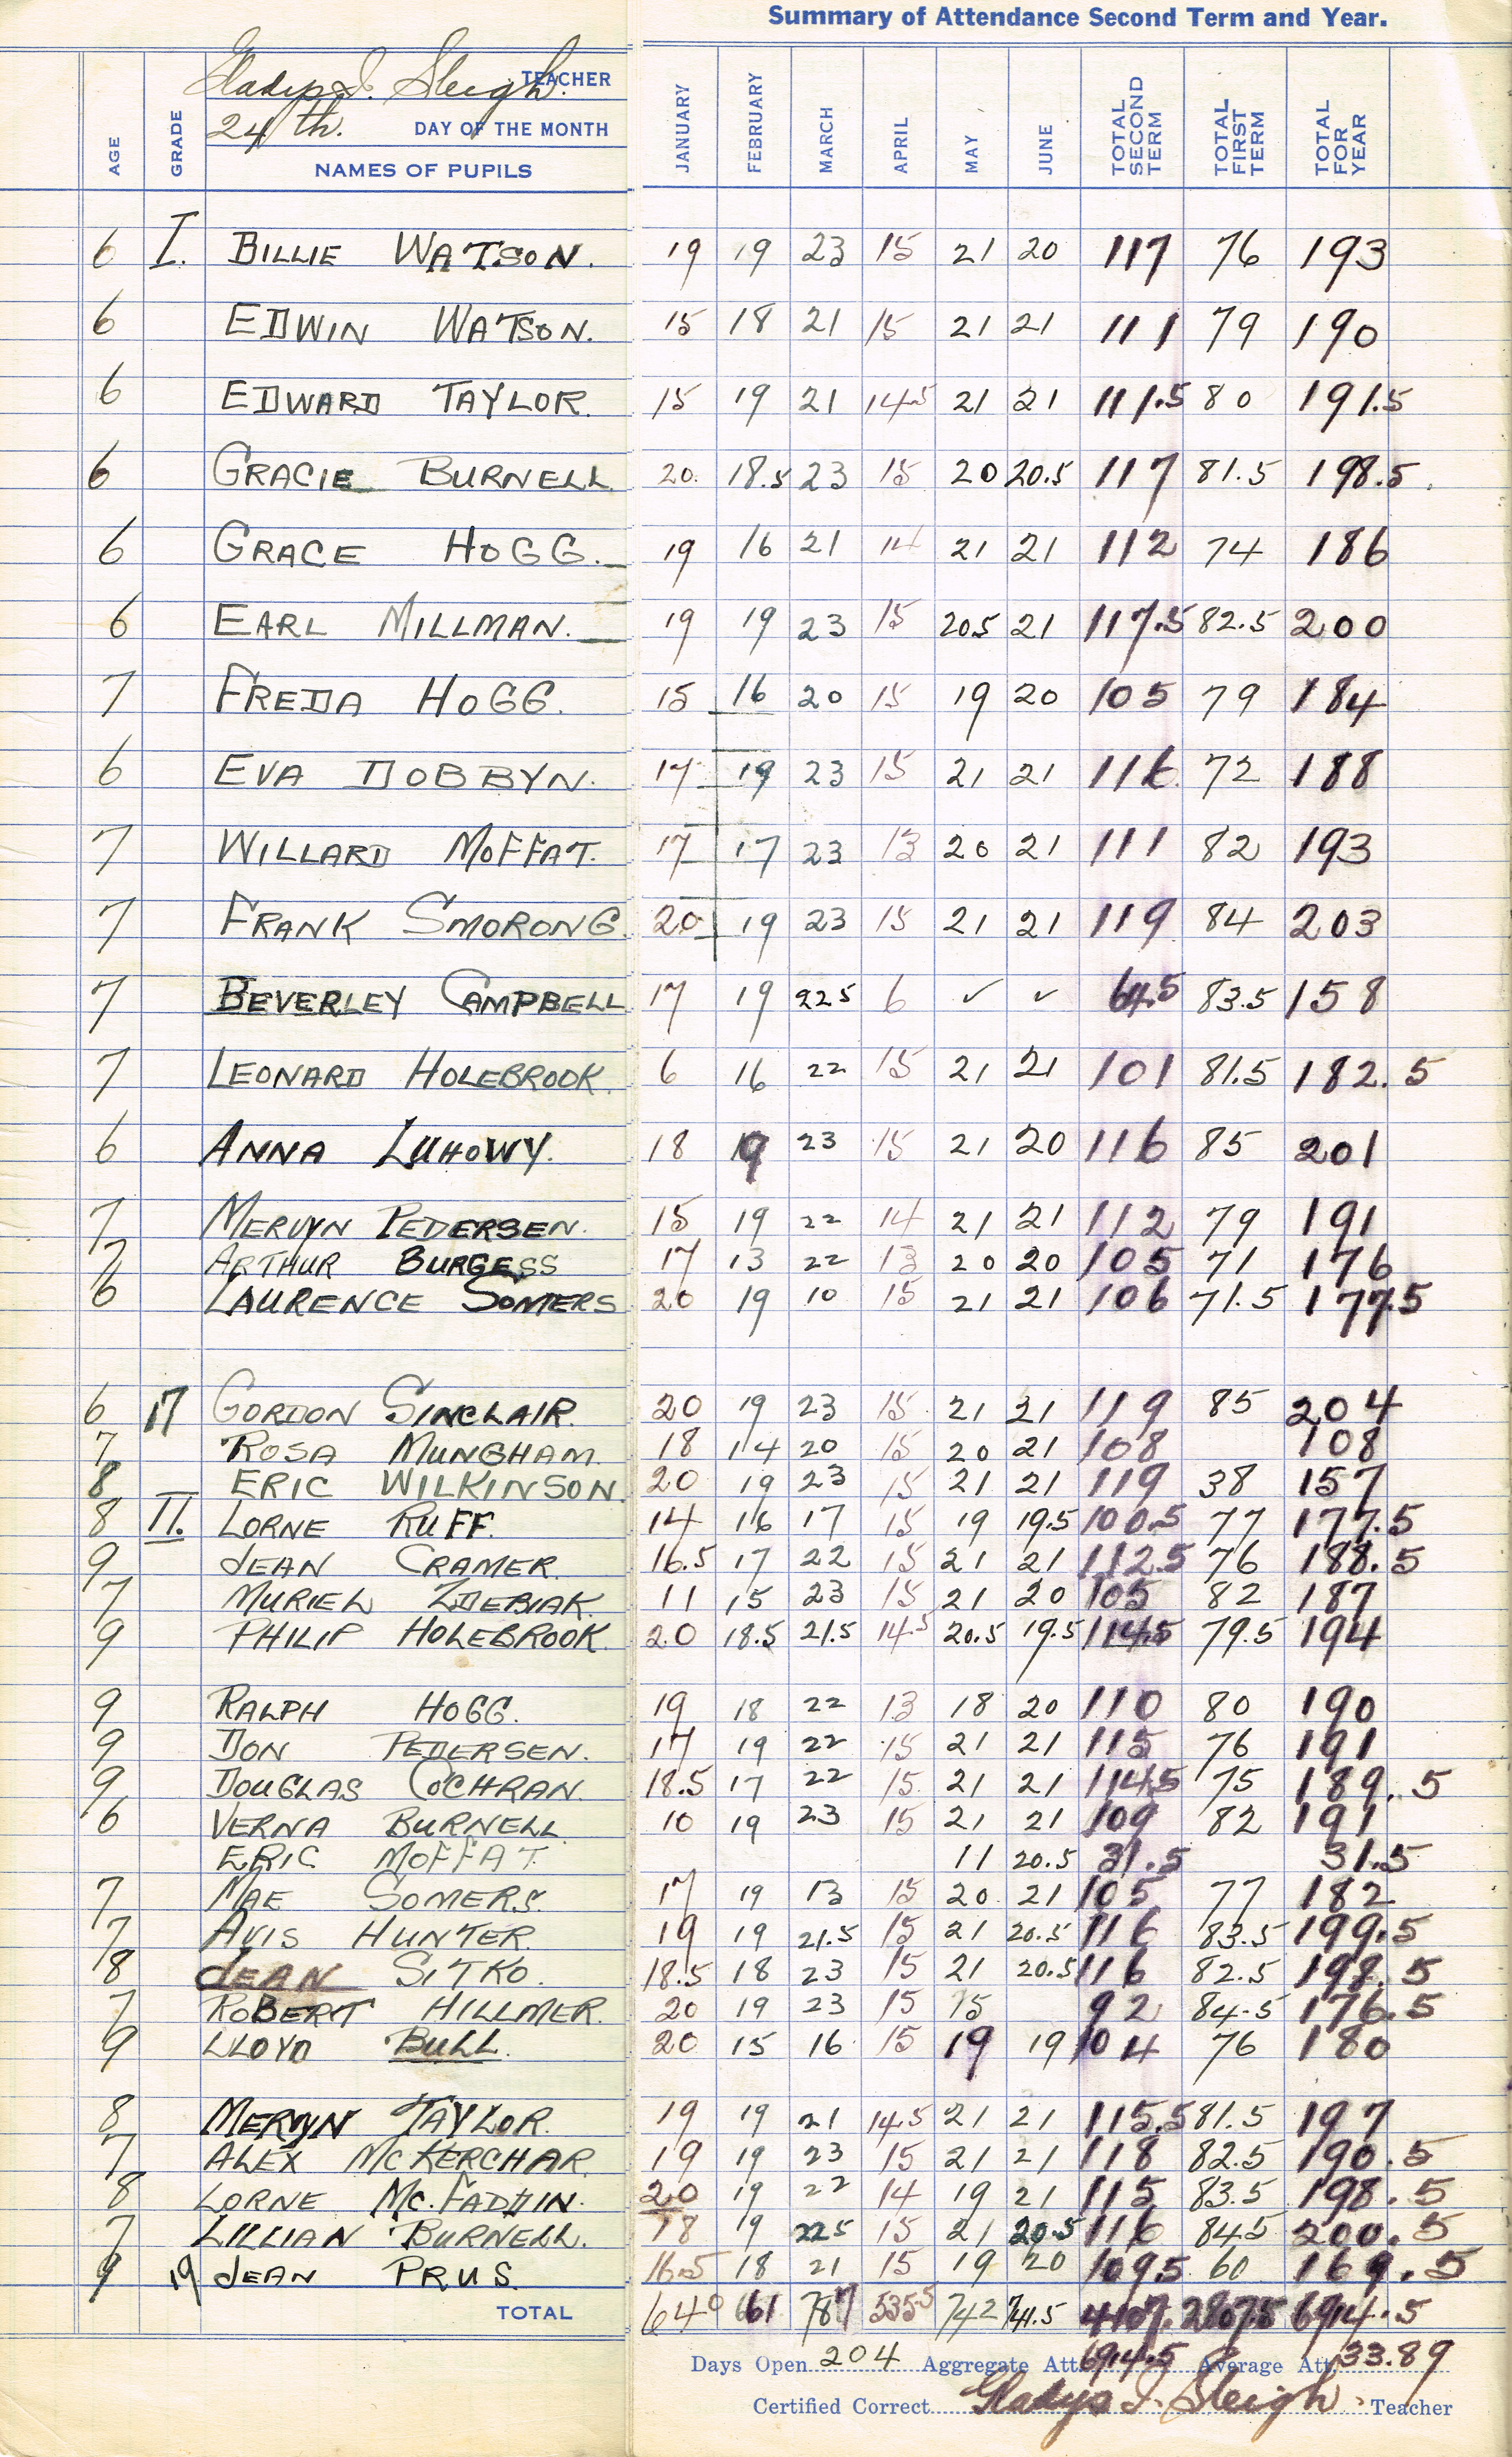 Summary of Attendance Second Term and Year.
Gladys I. Sleigh. TEACHER
24th. DAY OF THE MONTH
AGE GRADE NAMES OF PUPILS JANUARY FEBRUARY MARCH APRIL MAY JUNE TOTAL SECOND TERM TOTAL FIRST TERM TOTAL FOR YEAR
6 I. BILLIE WATSON. 19 19 23 15 21 20 117 76 193
6 EDWIN WATSON. 15 18 21 15 21 21 111 79 190
6 EDWARD TAYLOR. 15 19 21 14.5 21 21 111.5 80 191.5
6 GRACIE BURNELL 20. 18.5 23 15 20 20.5 117 81.5 198.5
6 GRACE HOGG. 19 16 21 14 21 21 112 74 186
6 EARL MILLMAN. 19 19 23 15 20.5 21 117.5 82.5 200
7 FREDA HOGG. 15 16 20 15 19 20 105 79 184
6 EVA DOBBYN. 17 19 23 15 21 21 116 72 188
7 WILLARD MOFFAT. 17 17 23 13 20 21 111 82 193
7 FRANK SMORONG. 20 19 23 15 21 21 119 84 203
7 BEVERLEY CAMPBELL 17 19 22 5 6 ✓ ✓ 64.5 83.5 158
7 LEONARD HOLEBROOK. 6 16 22 15 21 21 101 81.5 182.5
6 ANNA LUHOWY. 18 19 23 15 21 20 116 85 201
7 MERVYN PEDERSEN. 15 19 22 14 21 21 112 79 191
7 ARTHUR BURGESS 17 13 22 13 20 20 105 71 176
6 LAURENCE SOMERS 20 19 10 15 21 21 106 71.5 177.5
6 17 GORDON SINCLAIR. 20 19 23 15 21 21 119 85 204
7 ROSA MUNGHAM. 18 14 20 15 20 21 108 108
8 ERIC WILKINSON. 20 19 23 15 21 21 119 38 157
8 II. LORNE RUFF. 14 16 17 15 19 19.5 100.5 77 177.5
9 JEAN CRAMER. 16.5 17 22 15 21 21 112.5 76 188.5
7 MURIEL ZDEBIAK. 11 15 23 15 21 20 105 82 187
9 PHILIP HOLEBROOK. 20 18.5 21.5 14.5 20.5 19.5 114.5 79.5 194
9 RALPH HOGG. 19 18 22 13 18 20 110 80 190
9 DON PEDERSEN. 17 19 22 15 21 21 115 76 191
9 DOUGLAS COCHRAN. 18.5 17 22 15 21 21 114.5 75 189.5
6 VERNA BURNELL. 10 19 23 15 21 21 109 82 191
ERIC MOFFAT. 11 20.5 31.5 31.5
7 MAE SOMERS. 17 19 13 15 20 21 105 77 182
7 AVIS HUNTER. 19 19 21.5 15 21 20.5 116 83.5 199.5
8 JEAN SITKO. 18.5 18 23 15 21 20.5 116 82.5 198.5
7 ROBERT HILLMER. 20 19 23 15 15 92 84.5 176.5
9 LLOYD BULL. 20 15 16 15 19 19 104 76 180
8 MERVYN TAYLOR. 19 19 21 14.5 21 21 115.5 81.5 197
7 ALEX MCKERCHAR. 19 19 23 15 21 21 118 82.5 190.5
8 LORNE MC.FADDIN. 20 19 22 14 19 21 115 83.5 198.5
7 LILLIAN BURNELL. 18 19 22 5 15 21 20.5 116 84.5 200.5
9 19 JEAN PRUS. 16.5 18 21 15 19 20 109.5 60 169.5
TOTAL 640 661 787 535.5 742 741.5 4107. 2807.5 6914.5
Days Open 204 Aggregate Att. 6914.5 Average Att. 33.89
Certified Correct Gladys I. Sleigh. Teacher